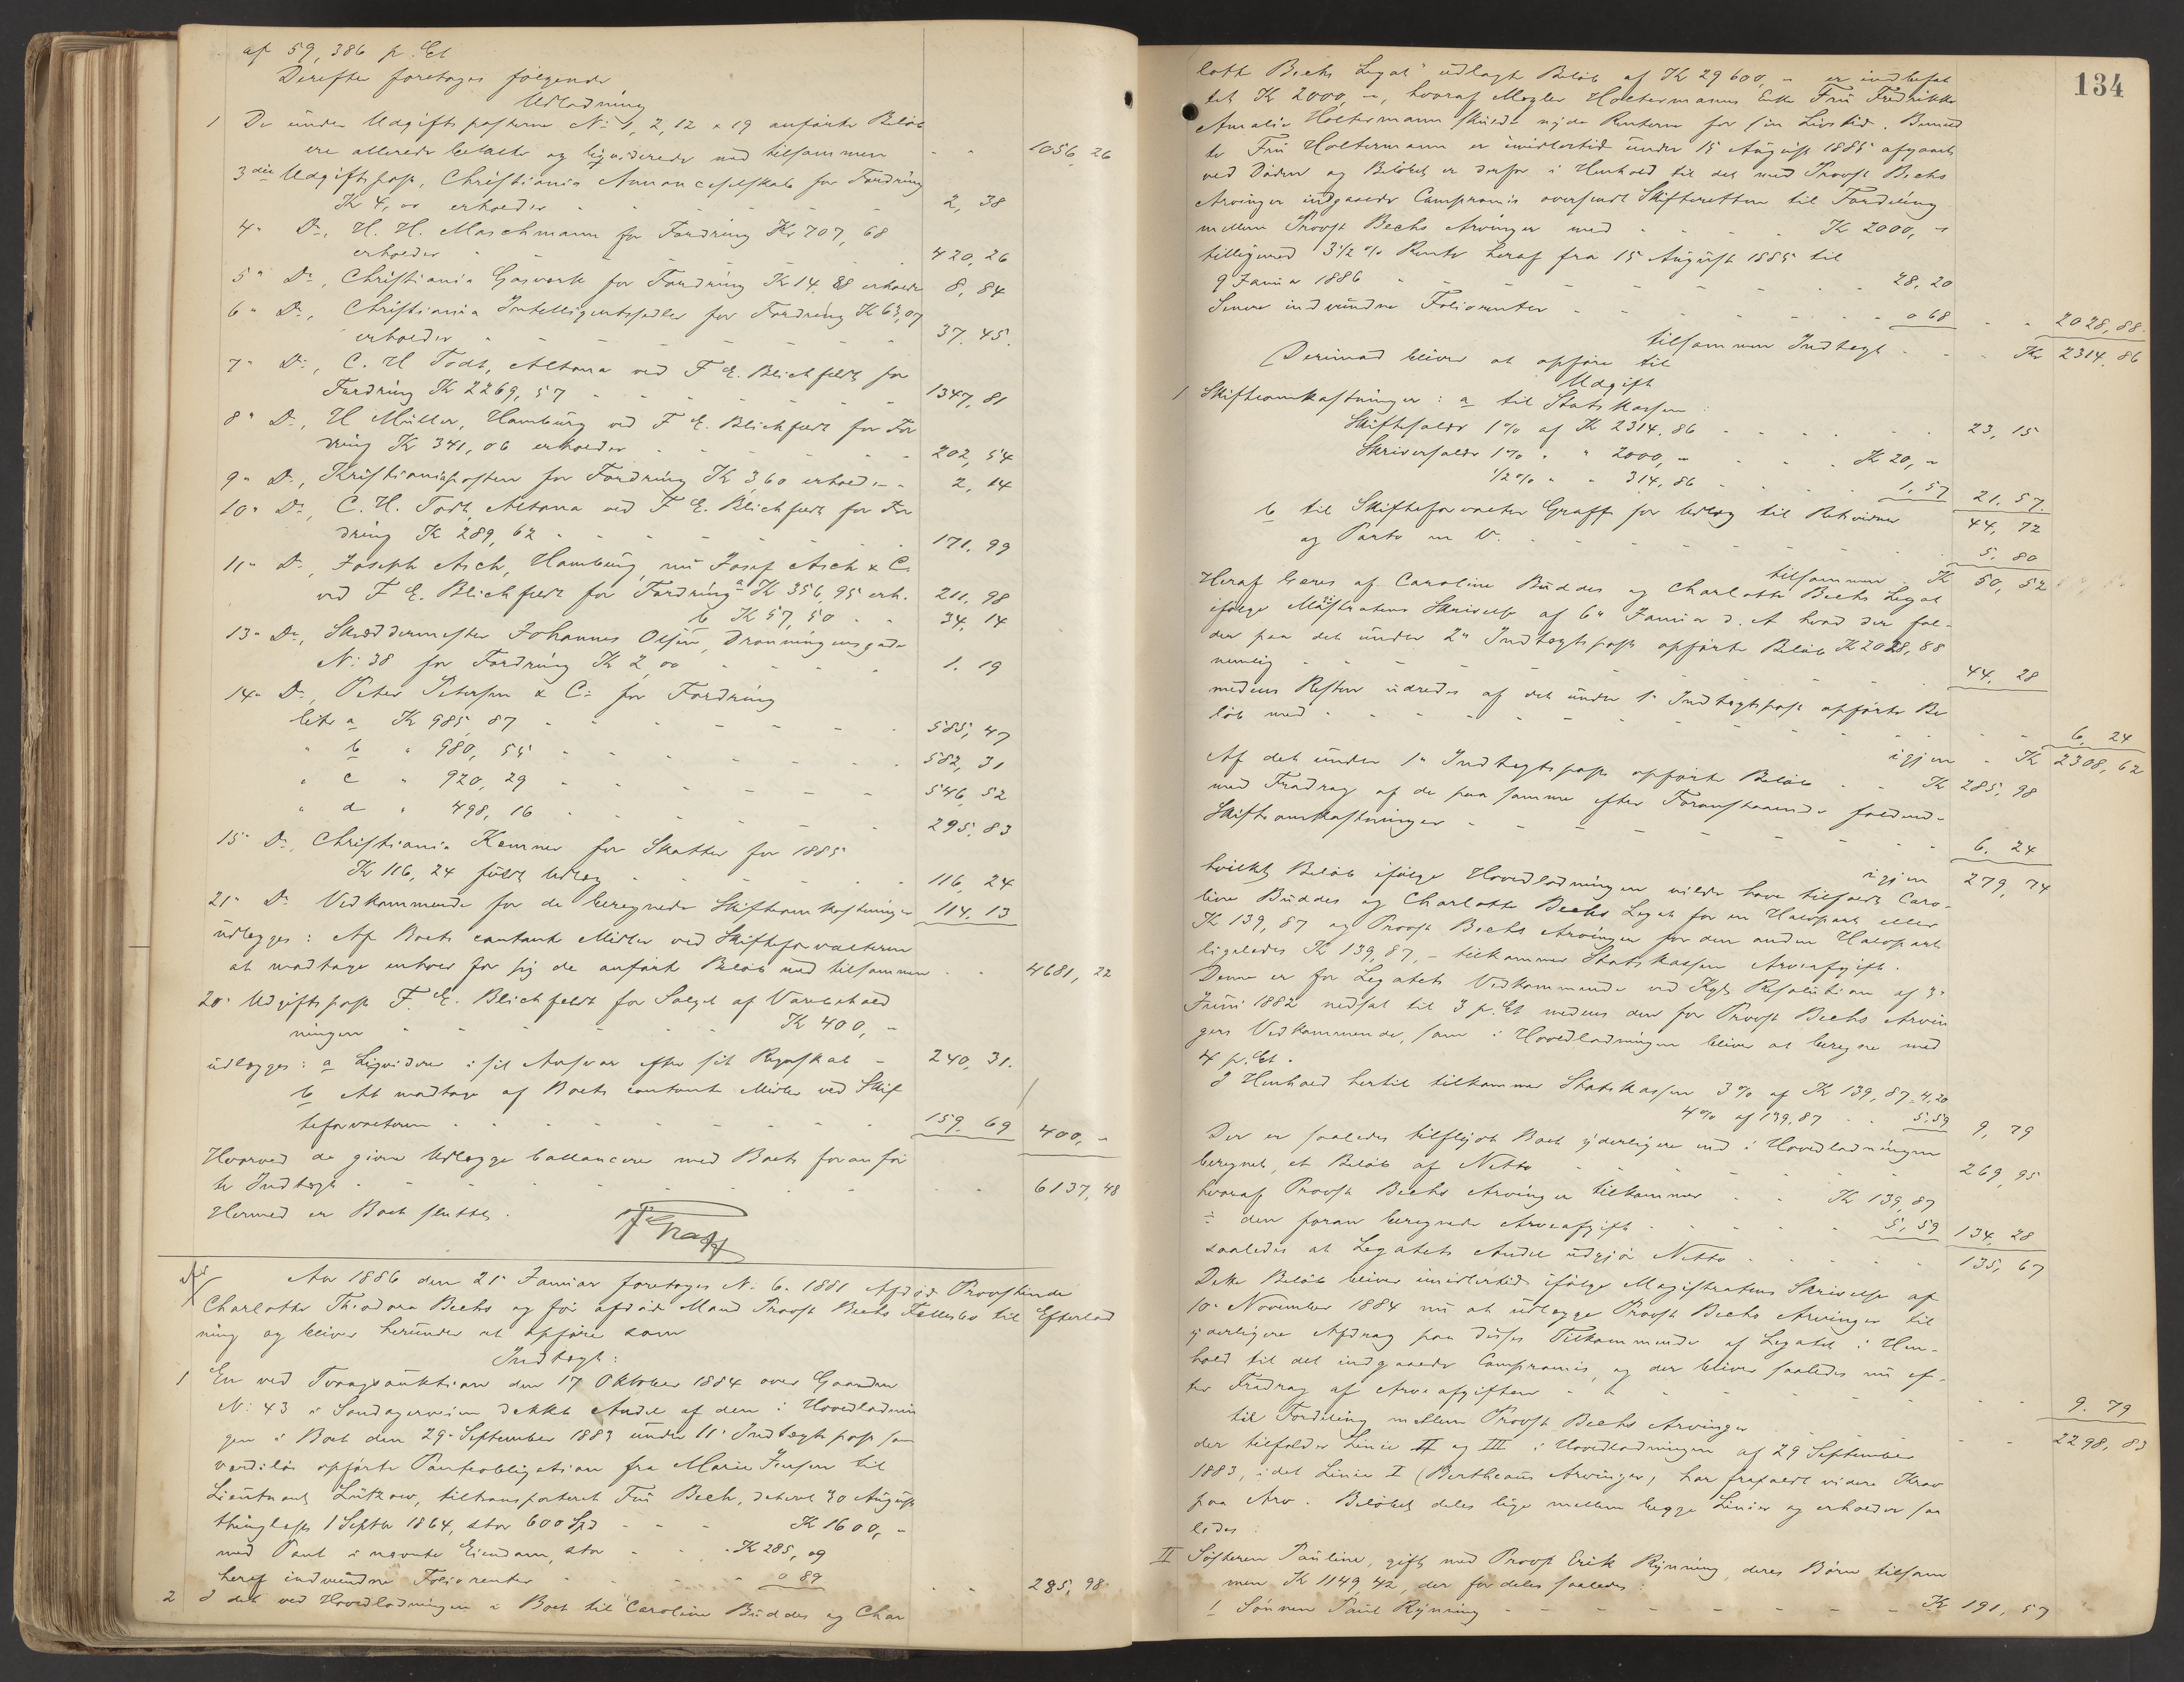 af 59,386 p. Ct
Derefter foretages følgende
Udlodning
1 De under Udgiftsposterne No 1, 2, 12 & 19 anførte Beløb
ere allerede betalte og liqviderede med tilsammen - - 1056,26
3die Udgiftspost, Christiania Annonceselskab for Fordring
Kr 4,00 erholder - - - 2,38
4" Do, H. H. Maschmann for Fordring Kr 707,68
erholder - - - 420,26
5" Do, Christiania Gasverk for Fordring Kr 14.88 erholder 8,84
6" Do, Christiania Intelligentssedler for Fordring Kr 63,07
erholder - - - 37.45.
7" Do, C. H Todt, Altona ved F E. Blichfeldt for
Fordring Kr 2269,57 - - - 1347,81
8" Do, H Müller, Hamburg ved F E. Blichfeldt for For
dring Kr 341,06 erholder - - - 202,54
9" Do, Kristianiaposten for Fordring Kr 3 60 erhold. - - 2,14
10" Do, C. H. Todt, Altona ved F E. Blichfeldt for For
dring Kr 289,62 - - - 171.99
11" Do, Joseph Asch, Hamburg, nu Josef Asch & Co
ved F E. Blichfeldt for Fordring a Kr 356,95 erh. 211,98
b Kr 57,50 - - 34,14
13" Do, Skræddermester Johannes Olsen, Dronningensgade
No 38 for Fordring Kr 2,00 - - - 1.19
14" Do, Peter Petersen & Co for Fordring
litr a Kr 985,87 - - - 585,47
" b " 980,55 - - - 582,31
" c " 920,29 - - - 546,52
" d " 498,16 - - - 295.83
15" Do, Christiania Kemner for Skatter for 1885
Kr 116,24 fuldt Udlæg - - - 116,24
21" Do Vedkommende for de beregnede Skifteomkostninger 114.13
udlægges: Af Boets contante Midler ved Skifteforvalteren
at modtage enhver for sig de anførte Beløb med tilsammen - - 4681,22
20" Udgiftspost F. E. Blichfeldt for Salget af Varebehold
ningen - - - Kr 400,-
udlægges: a Liqvidere i sit Ansvar efter sit Regnskab - 240,31.
b At modtage af Boets contante Midler ved Skif
teforvalteren - - - 159.69 400,-
Hvorved de givne Udlægge ballancere med Boets foran før
te Indtægt - - - 6137,48
Hermed er Boet sluttet.
Graff
Aar 1886 den 21" Januar foretoges No 6. 1881 Afdøde Provstinde
Charlotte Theodora Bechs og før afdøde Mand Provst Bechs Fællesbo til Efterlod
ning og bliver herunder at opføre som
Indtægt:
1 En ved Tvangsauktion den 17 Oktober 1884 over Gaarden
No 43 i Sandagerveien dækket Andel af den i Hovedlodnin
gen i Boet den 29" September 1883 under 11" Indtægtspost som
værdiløs opførte Panteobligation fra Marie Jensen til
Lieutnant Lützow, tiltransporteret Fru Bech, dateret 30 August
thinglæst 1 Septbr 1864, stor 600 Spd - - - Kr 1600,-
med Pant i nævnte Eiendom, stor - - - Kr 285,09
heraf indvundne Foliorenter - - - 0 89 - - 285,98
2 I det ved Hovedlodningen i Boet til "Caroline Buddes og Char
134
lotte Bechs Legat" udlagte Beløb af Kr 29600,- er indbefat
tet Kr 2000,-, hvoraf Mægler Holtermanns Enke Fru Fredrikke
Amalie Holtermann skulde nyde Renterne for sin Livstid. Bemeld
te Fru Holtermann er imidlertid under 15 August 1885 afgaaet
ved Døden og Beløbet er derfor i Henhold til det med Provst Bechs
Arvinger indgaaede Compromis oversendt Skifteretten til Fordeling
mellem Provst Bechs Arvinger med - - - Kr 2000,-
tilligemed 3½ % Rente heraf fra 15 August 1885 til
9 Januar 1886 - - - 28,20
Senere indvundne Foliorenter - - - 0 68 - - 2028,88.
tilsammen Indtægt - - Kr 2314.86
Derimod bliver at opføre til
Udgift
1 Skifteomkostninger: a til Statskassen:
Skiftesalær 1% af Kr 2314.86 - - - 23,15
Skriversalær 1% " " 2000,- - - - Kr 20,-
½% " " 314.86 - - - 1.57 21.57.
44,72
b til Skifteforvalter Graff for Udlæg til Retsvidner
og Porto m V. - - - 5.80
tilsammen Kr 50,52
Heraf bæres af Caroline Buddes og Charlotte Bechs Legat
ifølge Magistratens Skrivelse af 6" Januar d. A hvad der fal-
der paa det under 2" Indtægtspost opførte Beløb Kr 2028,88
nemlig - - - 44.28
medens Resten udredes af det under 1" Indtægtspost opførte Be
løb med - - - 6.24
igjen - Kr 2308,62
Af det under 1" Indtægtspost opførte Beløb - - Kr 285,98
med Fradrag af de paa samme efter Foranstaaende faldende
Skifteomkostninger - - - 6.24
igjen 279,74
hvilket Beløb ifølge Hovedlodningen vilde have tilfaldt Caro-
line Buddes og Charlotte Bechs Legat for en Halvpart eller
Kr 139,87 og Provst Bechs Arvinger for den anden Halvpart
ligeledes Kr 139,87,- tilkommer Statskassen Arveafgift.
Denne er for Legatets Vedkommende ved Kgl. Resolution af 3"
Juni 1882 nedsat til 3 p. Ct medens den for Provst Bechs Arvin
gers Vedkommende, som i Hovedlodningen bliver at beregne med
4 p. Ct.
I Henhold hertil tilkommer Statskassen 3% af Kr 139,87. 4,20
4% af 139,87 - - 5.59 9,79
Der er saaledes tilflydt Boet yderligere end i Hovedlodningen
beregnet, et Beløb af Netto - - - 269,95
hvoraf Provst Bechs Arvinger tilkommer - - Kr 139,87
÷ den foran beregnede Arveafgift - - - 5,59 134,28
saaledes at Legatets Andel udgjør Netto - - - 135,67
Dette Beløb bliver imidlertid ifølge Magistratens Skrivelse af
10" November 1884 nu at udlægge Provst Bechs Arvinger til
yderligere Afdrag paa disses Tilkommende af Legatet i Hen-
hold til det indgaaede Compromis, og der bliver saaledes nu ef-
ter Fradrag af Arveafgiften - - - 9.79
til Fordeling mellem Provst Bechs Arvinger - - - 2298,83
der tilfalder Linie II og III i Hovedlodningen af 29 September
1883, idet Linie I (Bertheaus Arvinger) har frafaldt videre Krav
paa Arv. Beløbet deles lige mellem begge Linier og erholder saa
ledes:
II Søsteren Pauline, gift med Provst Erik Rynning, deres Børn tilsam
men Kr 1149,42, der fordeles saaledes:
1 Sønnen Paul Rynning - - - Kr 191,57